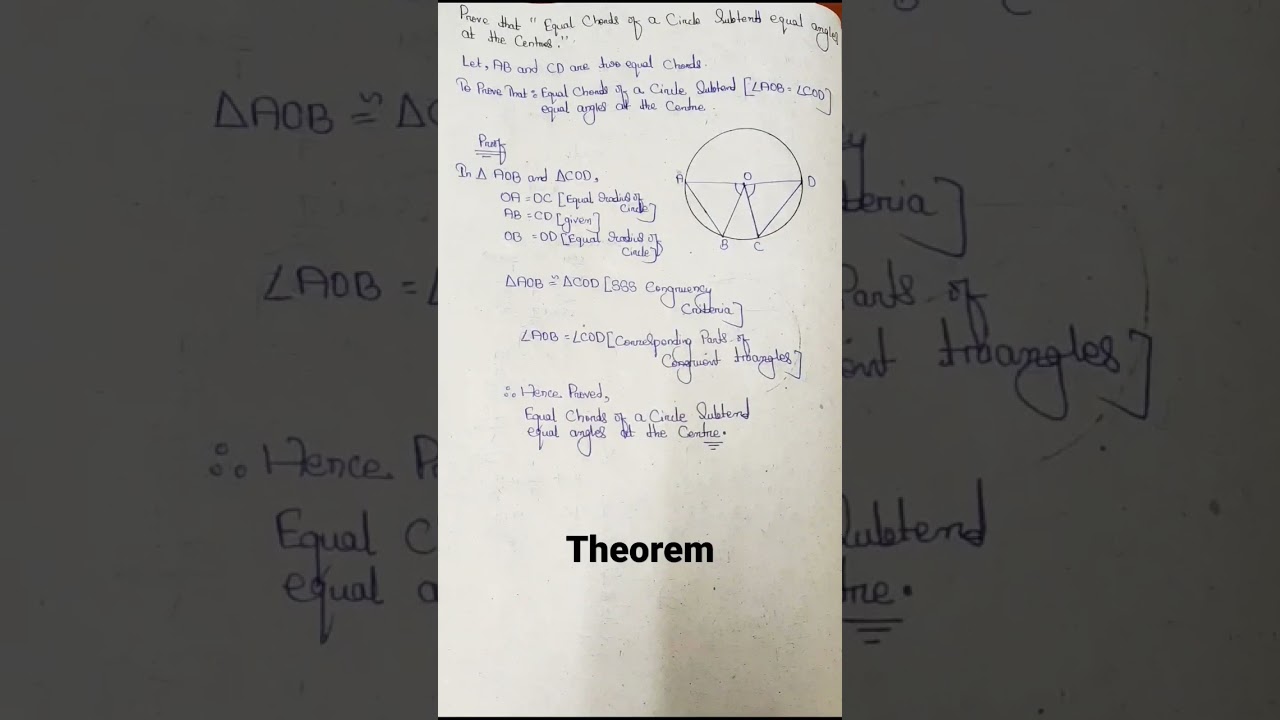 Prove that "Equal Chords of a Circle Subtend equal angles
at the Centres."
Let, AB and CD are two equal Chords.
To Prove That : Equal Chords of a Circle Subtend [∠AOB = ∠COD]
equal angles at the Centre.
Proof
In Δ AOB and ΔCOD,
OA = OC [Equal radius of
Circle]
AB = CD [given]
OB = OD [Equal radius of
Circle]
A
O
D
B
C
ΔAOB ≅ ΔCOD [SSS Congruency
Criteria]
∠AOB = ∠COD [Corresponding Parts of
Congruent triangles]
∴ Hence Proved,
Equal Chords of a Circle Subtend
equal angles at the Centre.
Theorem
ΔAOB ≅ Δ
teria]
∠AOB =
Parts of
triangles]
∴ Hence P
Equal C
ubtend
equal a